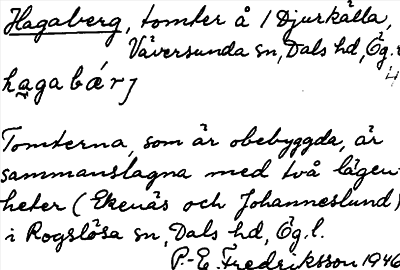 Hagaberg, tomter å 1 Djurkälla,
Väversunda sn, Dals hd, Ög.
hagabærj
Tomterna, som är obebyggda, är
sammanslagna med två lägen-
heter (Ekenäs och Johanneslund)
i Rogslösa sn, Dals hd, Ög.l.
P.-E. Fredriksson 1946